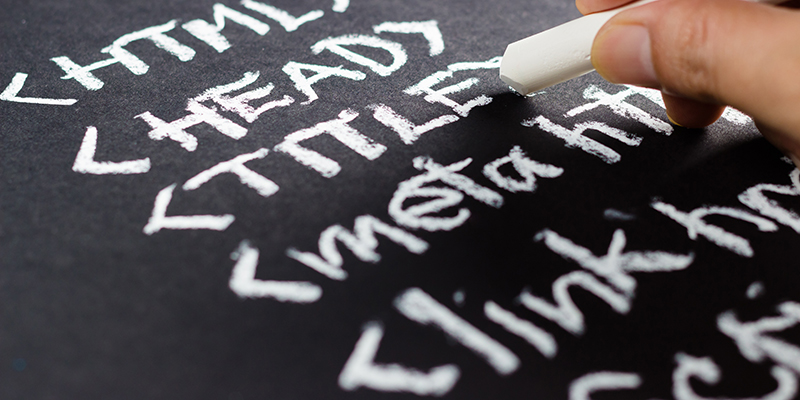 <HTML>
<HEAD>
<TITLE
<meta ht
<link h